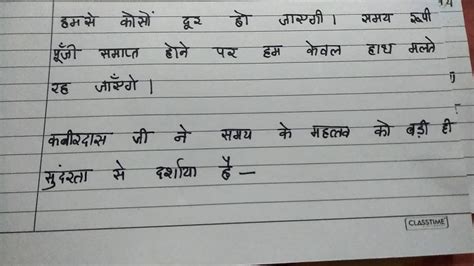 हमसे कोसों दूर हो जाएगी। समय रूपी
पूँजी समाप्त होने पर हम केवल हाथ मलते
रह जाएँगे।
कबीरदास जी ने समय के महत्व को बड़ी ही
सुंदरता से दर्शाया है —
CLASSTIME